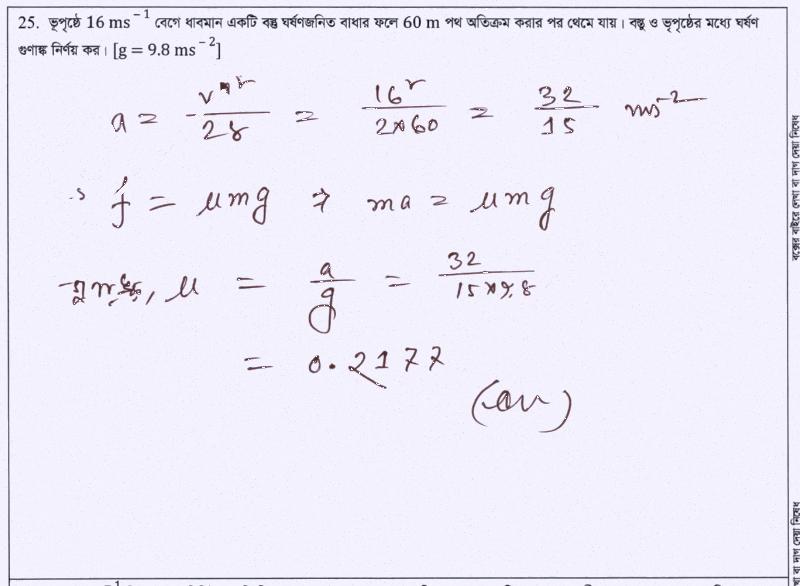 25. ভূপৃষ্ঠে 16 ms⁻¹ বেগে ধাবমান একটি বস্তু ঘর্ষণজনিত বাধার ফলে 60 m পথ অতিক্রম করার পর থেমে যায়। বস্তু ও ভূপৃষ্ঠের মধ্যে ঘর্ষণ
গুণাঙ্ক নির্ণয় কর। [g = 9.8 ms⁻²]
a = -v²/2s = 16²/2×60 = 32/15 ms⁻²
f = μmg ⇒ ma = μmg
গুণাঙ্ক, μ = a/g = 32/15×9.8
= 0.2177
(Ans)
বক্সের বাইরে লেখা বা দাগ দেয়া নিষেধ
বা দাগ দেয়া নিষেধ